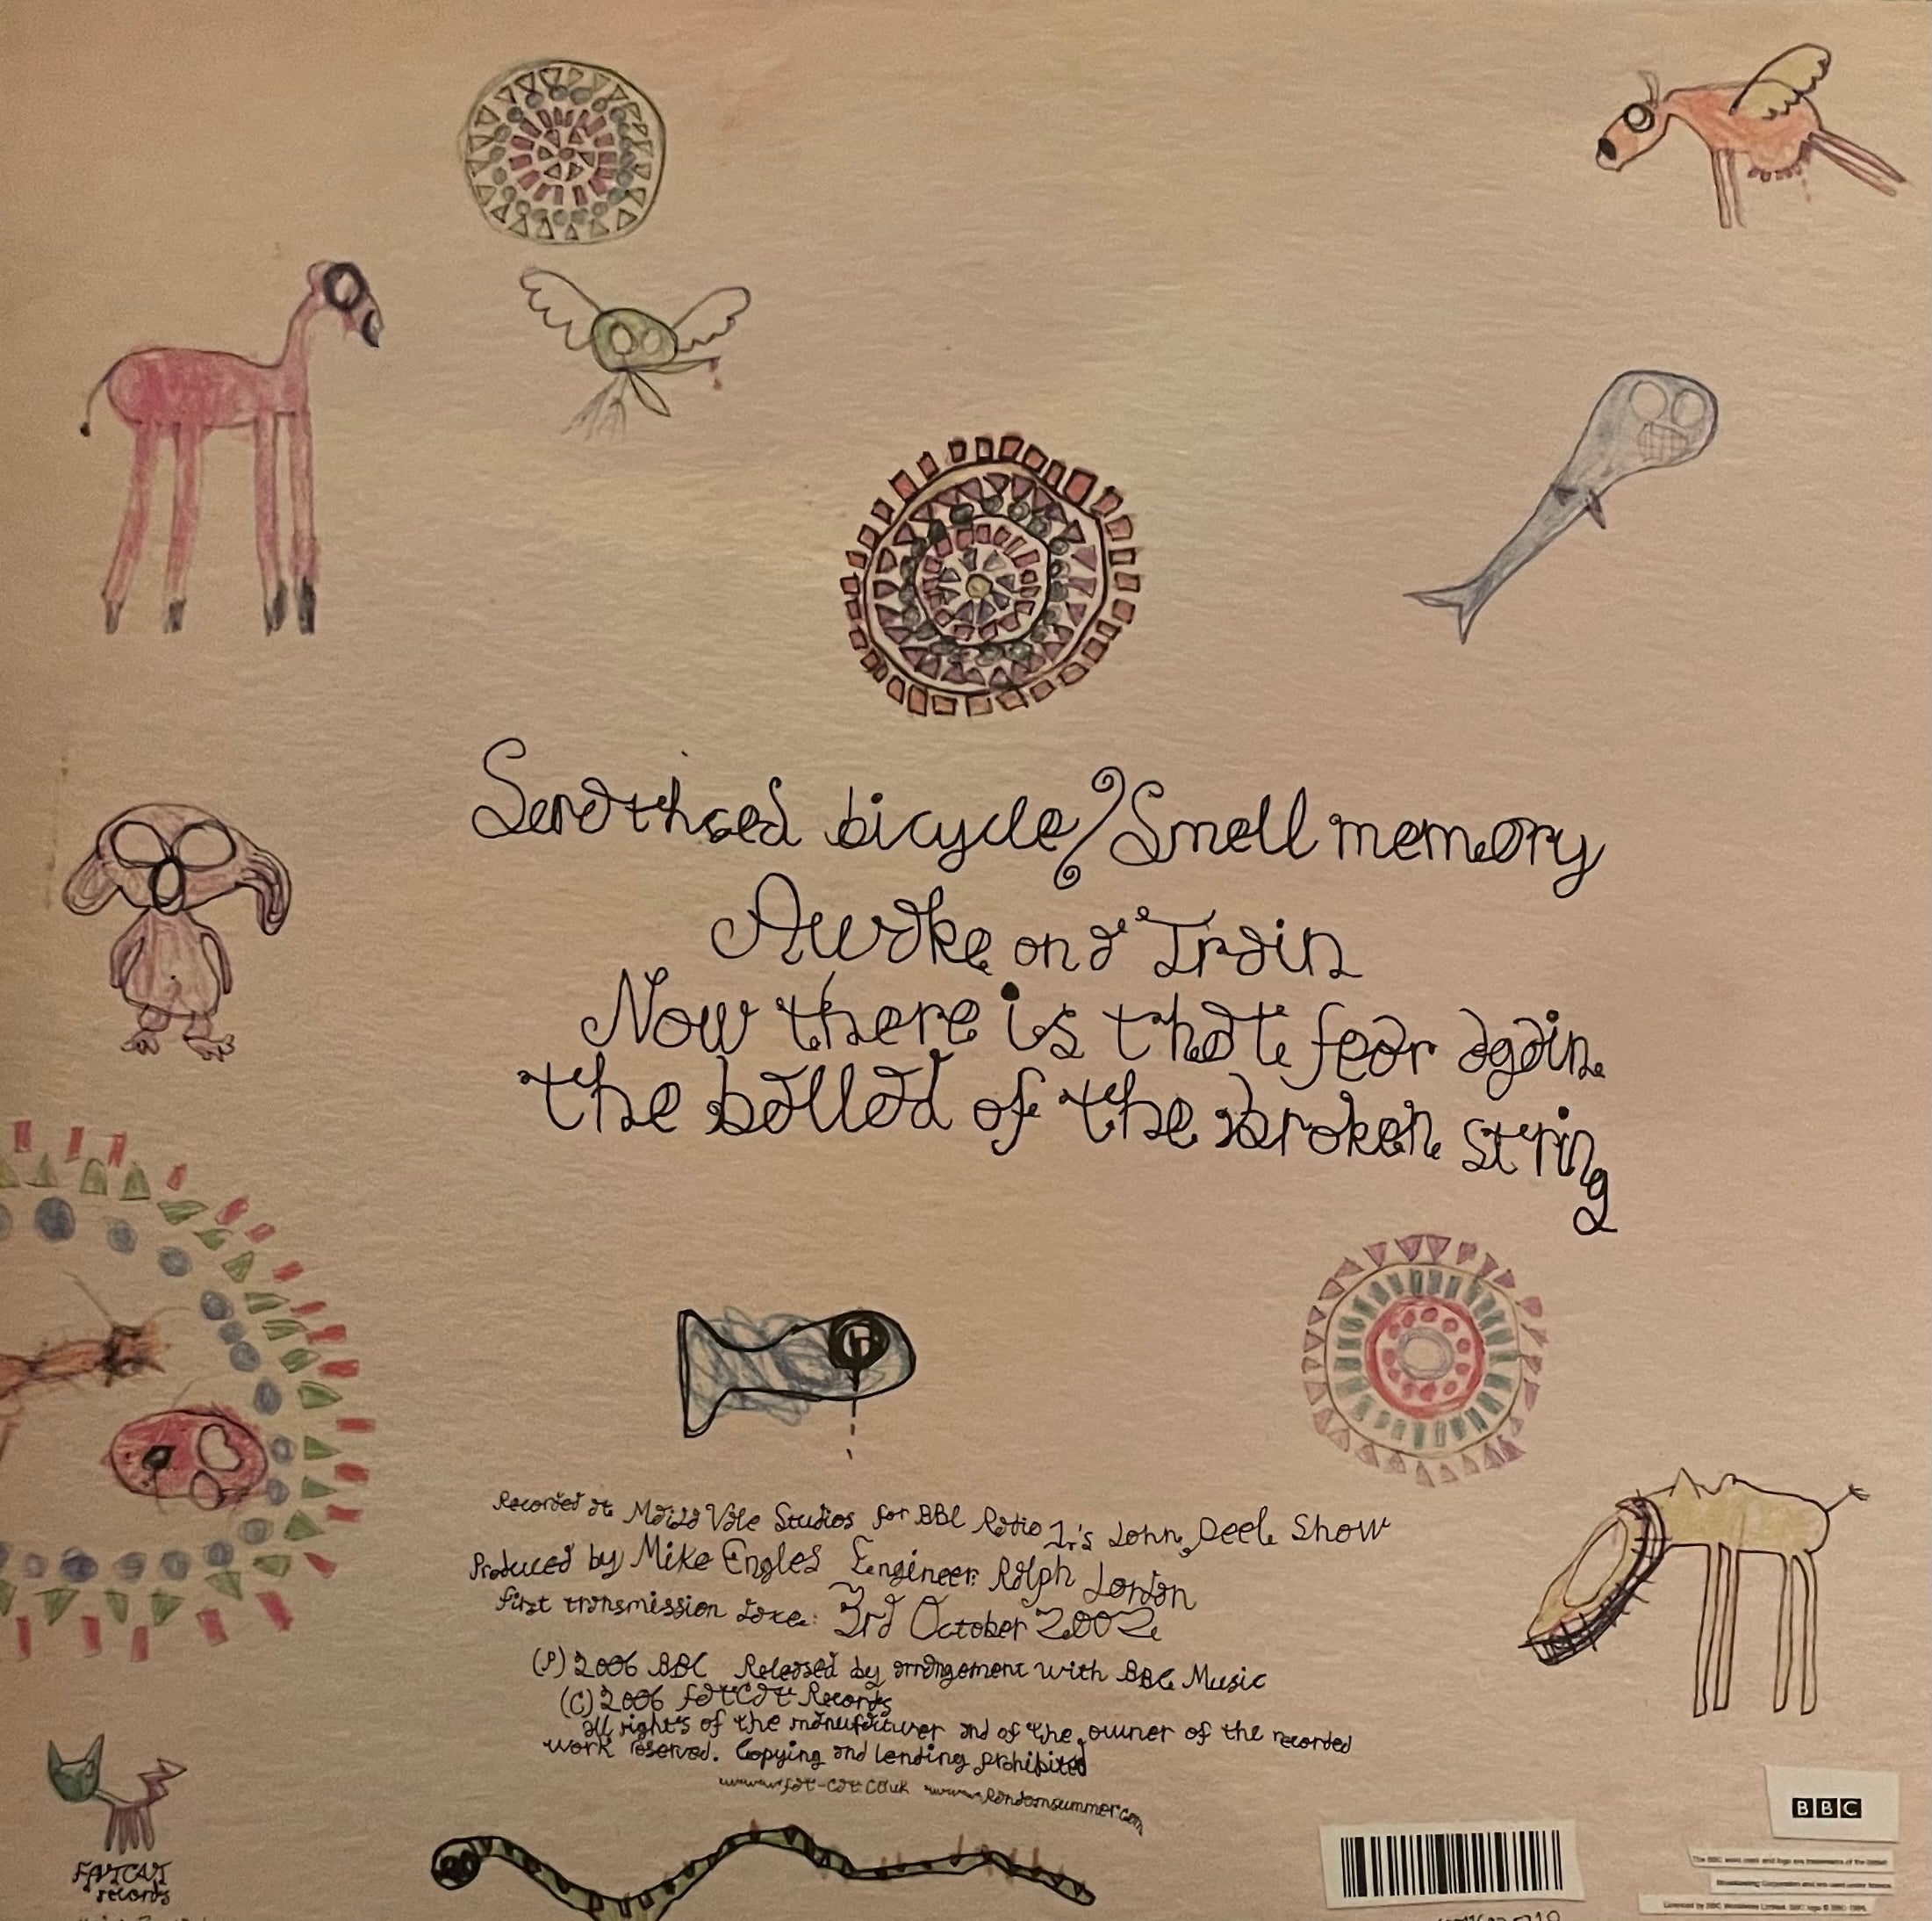 Serathced bicycle/Smell memory
Awake on a Train
Now there is that fear again
the ballad of the broken string
Recorded at Maida Vale Studios for BBC Radio 1's John Peel Show
Produced by Mike Engles Engineer: Ralph Jordan
first transmission date: 3rd October 2002
(P) 2006 BBC Released by arrangement with BBC Music
(C) 2006 FatCat Records
all rights of the manufacturer and of the owner of the recorded
work reserved. Copying and lending prohibited
www.fat-cat.co.uk www.Randomsummer.com
FATCAT
records
BBC
The BBC word mark and logo are trademarks of the British
Broadcasting Corporation and are used under licence.